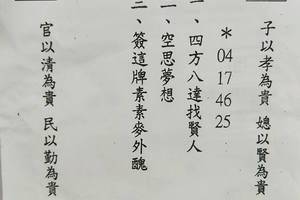 子以孝為貴 媳以賢為貴
* 04 17 46 25
一、四方八達找賢人
二、空思夢想
三、簽這牌素素麥外醜
官以清為貴 民以勤為貴